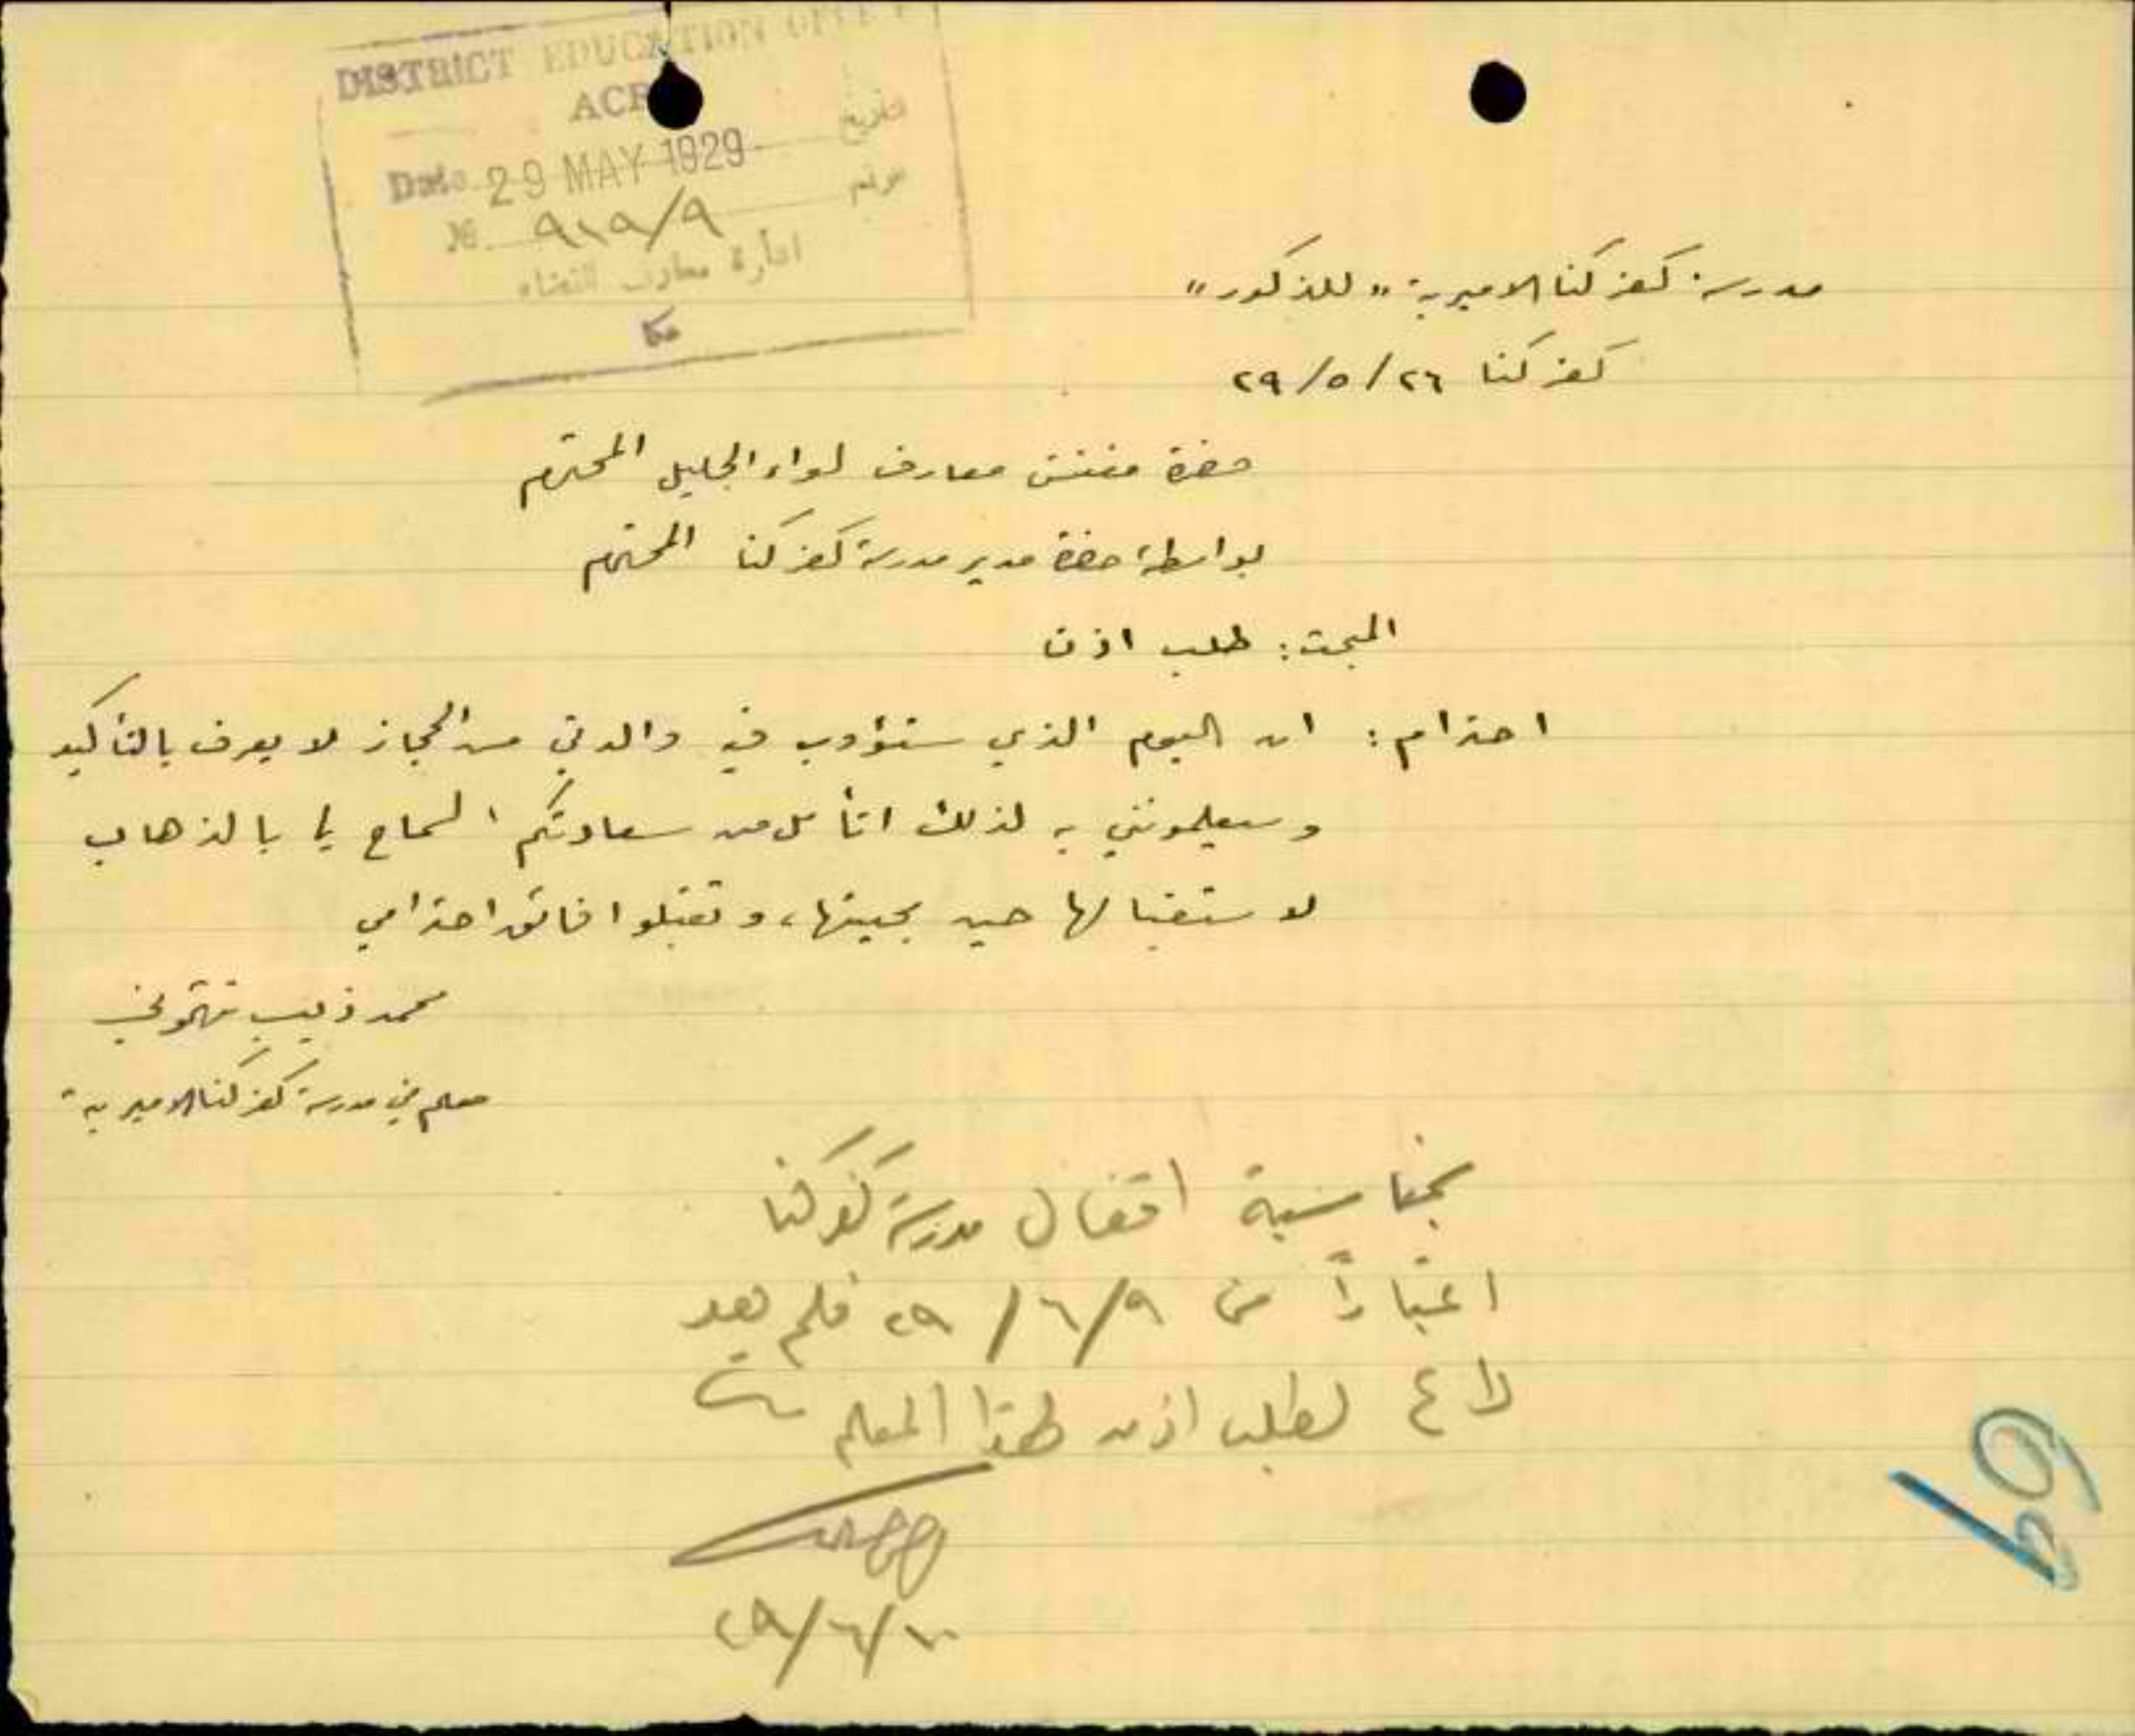 DISTRICT EDUCATION OFFICE
ACRE
Date 29 MAY 1929 تاريخ
№ ٩١٩/٩
ادارة معارف القضاء
عكا
مدرسة كفركنا الاميرية "للذكور"
كفركنا ٢٦/٥/٢٩
حضرة مفتش معارف لواء الجليل المحترم
بواسطة حضرة مدير مدرسة كفركنا المحترم
المبحث: طلب اذن
احترام: ان اليوم الذي ستؤوب فيه والدتي من الحجاز لا يعرف بالتأكيد
وسيعلمونني به لذلك اتأمل من سعادتكم السماح لي بالذهاب
لاستقبالها حين مجيئها، وتقبلوا فائق احترامي
محمد ذيب
معلم في مدرسة كفركنا الاميرية
بمناسبة اقفال مدرسة كفركنا
اعتبارًا من ٩/٦/٢٩ فلم يعد
داع لطلب اذن لهذا المعلم
١٠/٦/٢٩
69